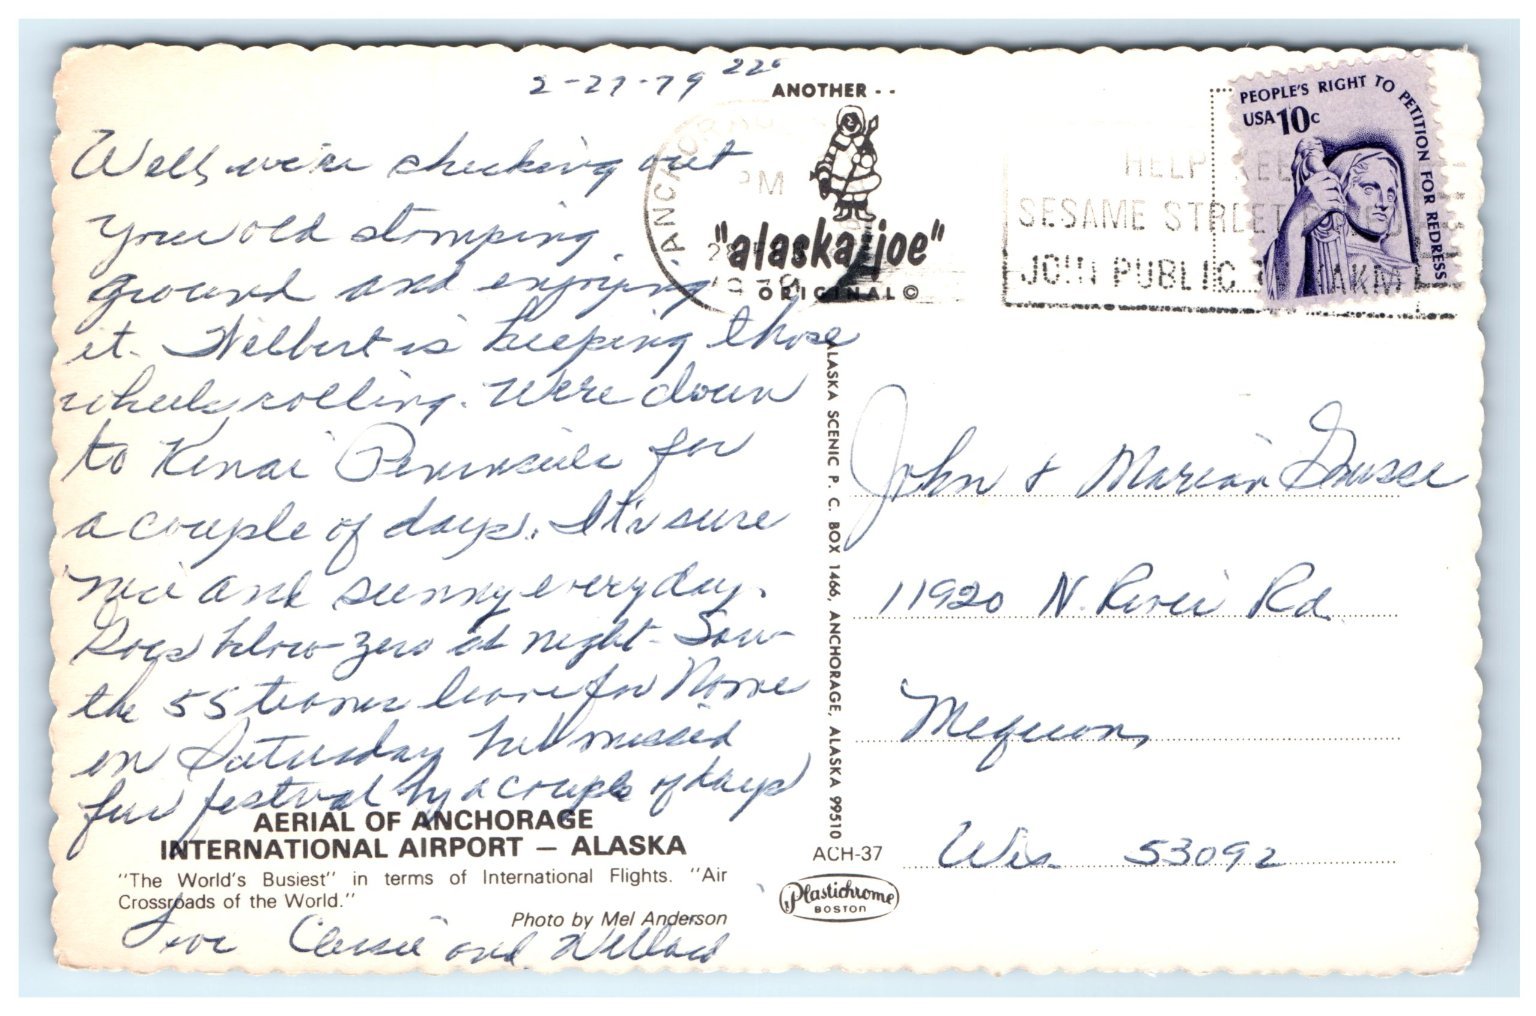 2-27-79 22°
Well, we're checking out
your old stomping
ground and enjoying
it. Wilbert is keeping those
wheels rolling. We're down
to Kenai Peninsula for
a couple of days. It's sure
nice and sunny everyday.
Goes below zero at night. Saw
the 55 teams leave for Nome
on Saturday but missed
fur festival by a couple of days
AERIAL OF ANCHORAGE
INTERNATIONAL AIRPORT — ALASKA
"The World's Busiest" in terms of International Flights. "Air
Crossroads of the World."
Photo by Mel Anderson
Love and
ANOTHER - -
"alaska joe"
ORIGINAL ©
ANCHORAGE
PM
HELP KEEP
SESAME STREET
JOIN PUBLIC
PEOPLE'S RIGHT TO PETITION FOR REDRESS
USA 10c
ALASKA SCENIC P. C. BOX 1466, ANCHORAGE, ALASKA 99510
John & Marian
11920 N. River Rd.
Mequon,
Wis 53092
ACH-37
Plastichrome
BOSTON